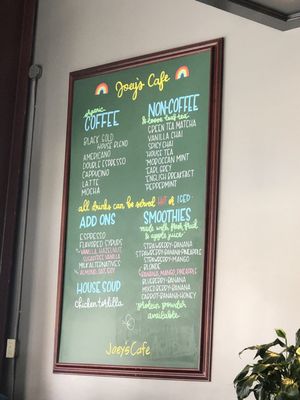 Joey's Cafe
organic
COFFEE
BLACK GOLD
HOUSE BLEND
AMERICANO
DOUBLE ESPRESSO
CAPPUCINO
LATTE
MOCHA
NON-COFFEE
& loose leaf tea
GREEN TEA MATCHA
VANILLA CHAI
SPICY CHAI
HOUSE TEA
MOROCCAN MINT
EARL GREY
ENGLISH BREAKFAST
PEPPERMINT
all drinks can be served HOT or ICED
ADD ONS
ESPRESSO
FLAVORED SYRUPS
VANILLA, HAZELNUT,
SUGARFREE VANILLA
MILK ALTERNATIVES
ALMOND, OAT, SOY
HOUSE SOUP
Chicken tortilla
SMOOTHIES
made with fresh fruit
& apple juice
STRAWBERRY-BANANA
STRAWBERRY-BANANA-PINEAPPLE
STRAWBERRY-MANGO
BLONDIE
BANANA, MANGO, PINEAPPLE
BLUEBERRY-BANANA
MIXED BERRY-BANANA
CARROT-BANANA-HONEY
protein powder
available
Joey's Cafe